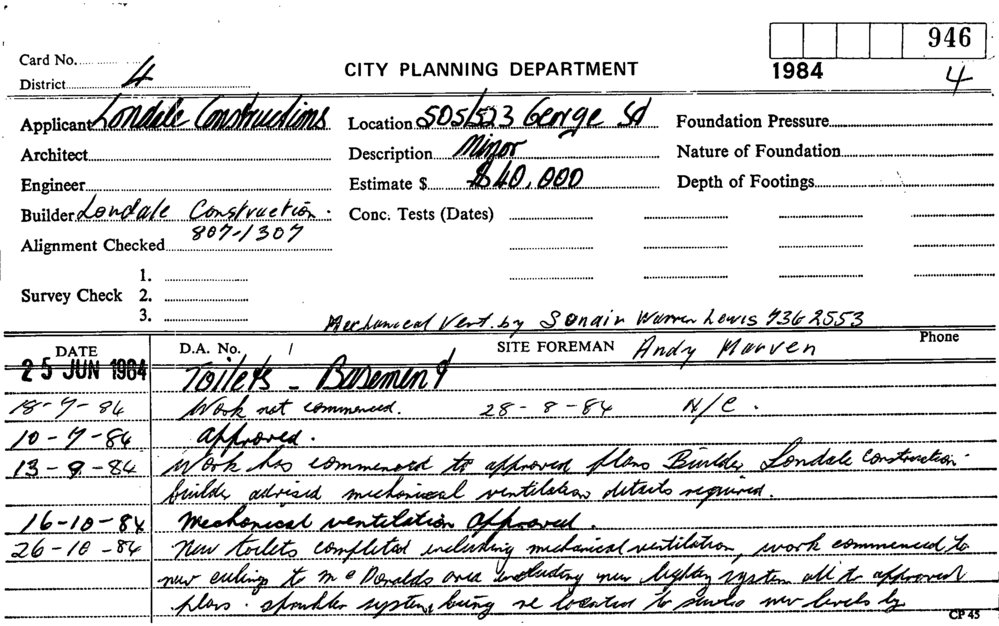 946
Card No.
District 4
CITY PLANNING DEPARTMENT
1984 4
Applicant Londale Constructions Location 505/523 George St Foundation Pressure
Architect Description Minor Nature of Foundation
Engineer Estimate $ $40,000 Depth of Footings
Builder Londale Construction. Conc. Tests (Dates)
807-1307
Alignment Checked
1.
Survey Check 2.
3.
Mechanical Vent. by Sonair Warren Lewis 736 2553
DATE D.A. No. SITE FOREMAN Andy Marven Phone
25 JUN 1984 Toilets - Basement
18-7-84 Work not commenced. 28-8-84 N/C.
10-7-84 approved.
13-9-84 Work has commenced to approved plans Builder Londale Construction
builder advised mechanical ventilation details required.
16-10-84 Mechanical ventilation approved.
26-10-84 New toilets completed including mechanical ventilation, work commenced to
new ceilings to McDonalds area including new lighting system all to approved
plans. sprinkler system being re located to new levels by
CP 45